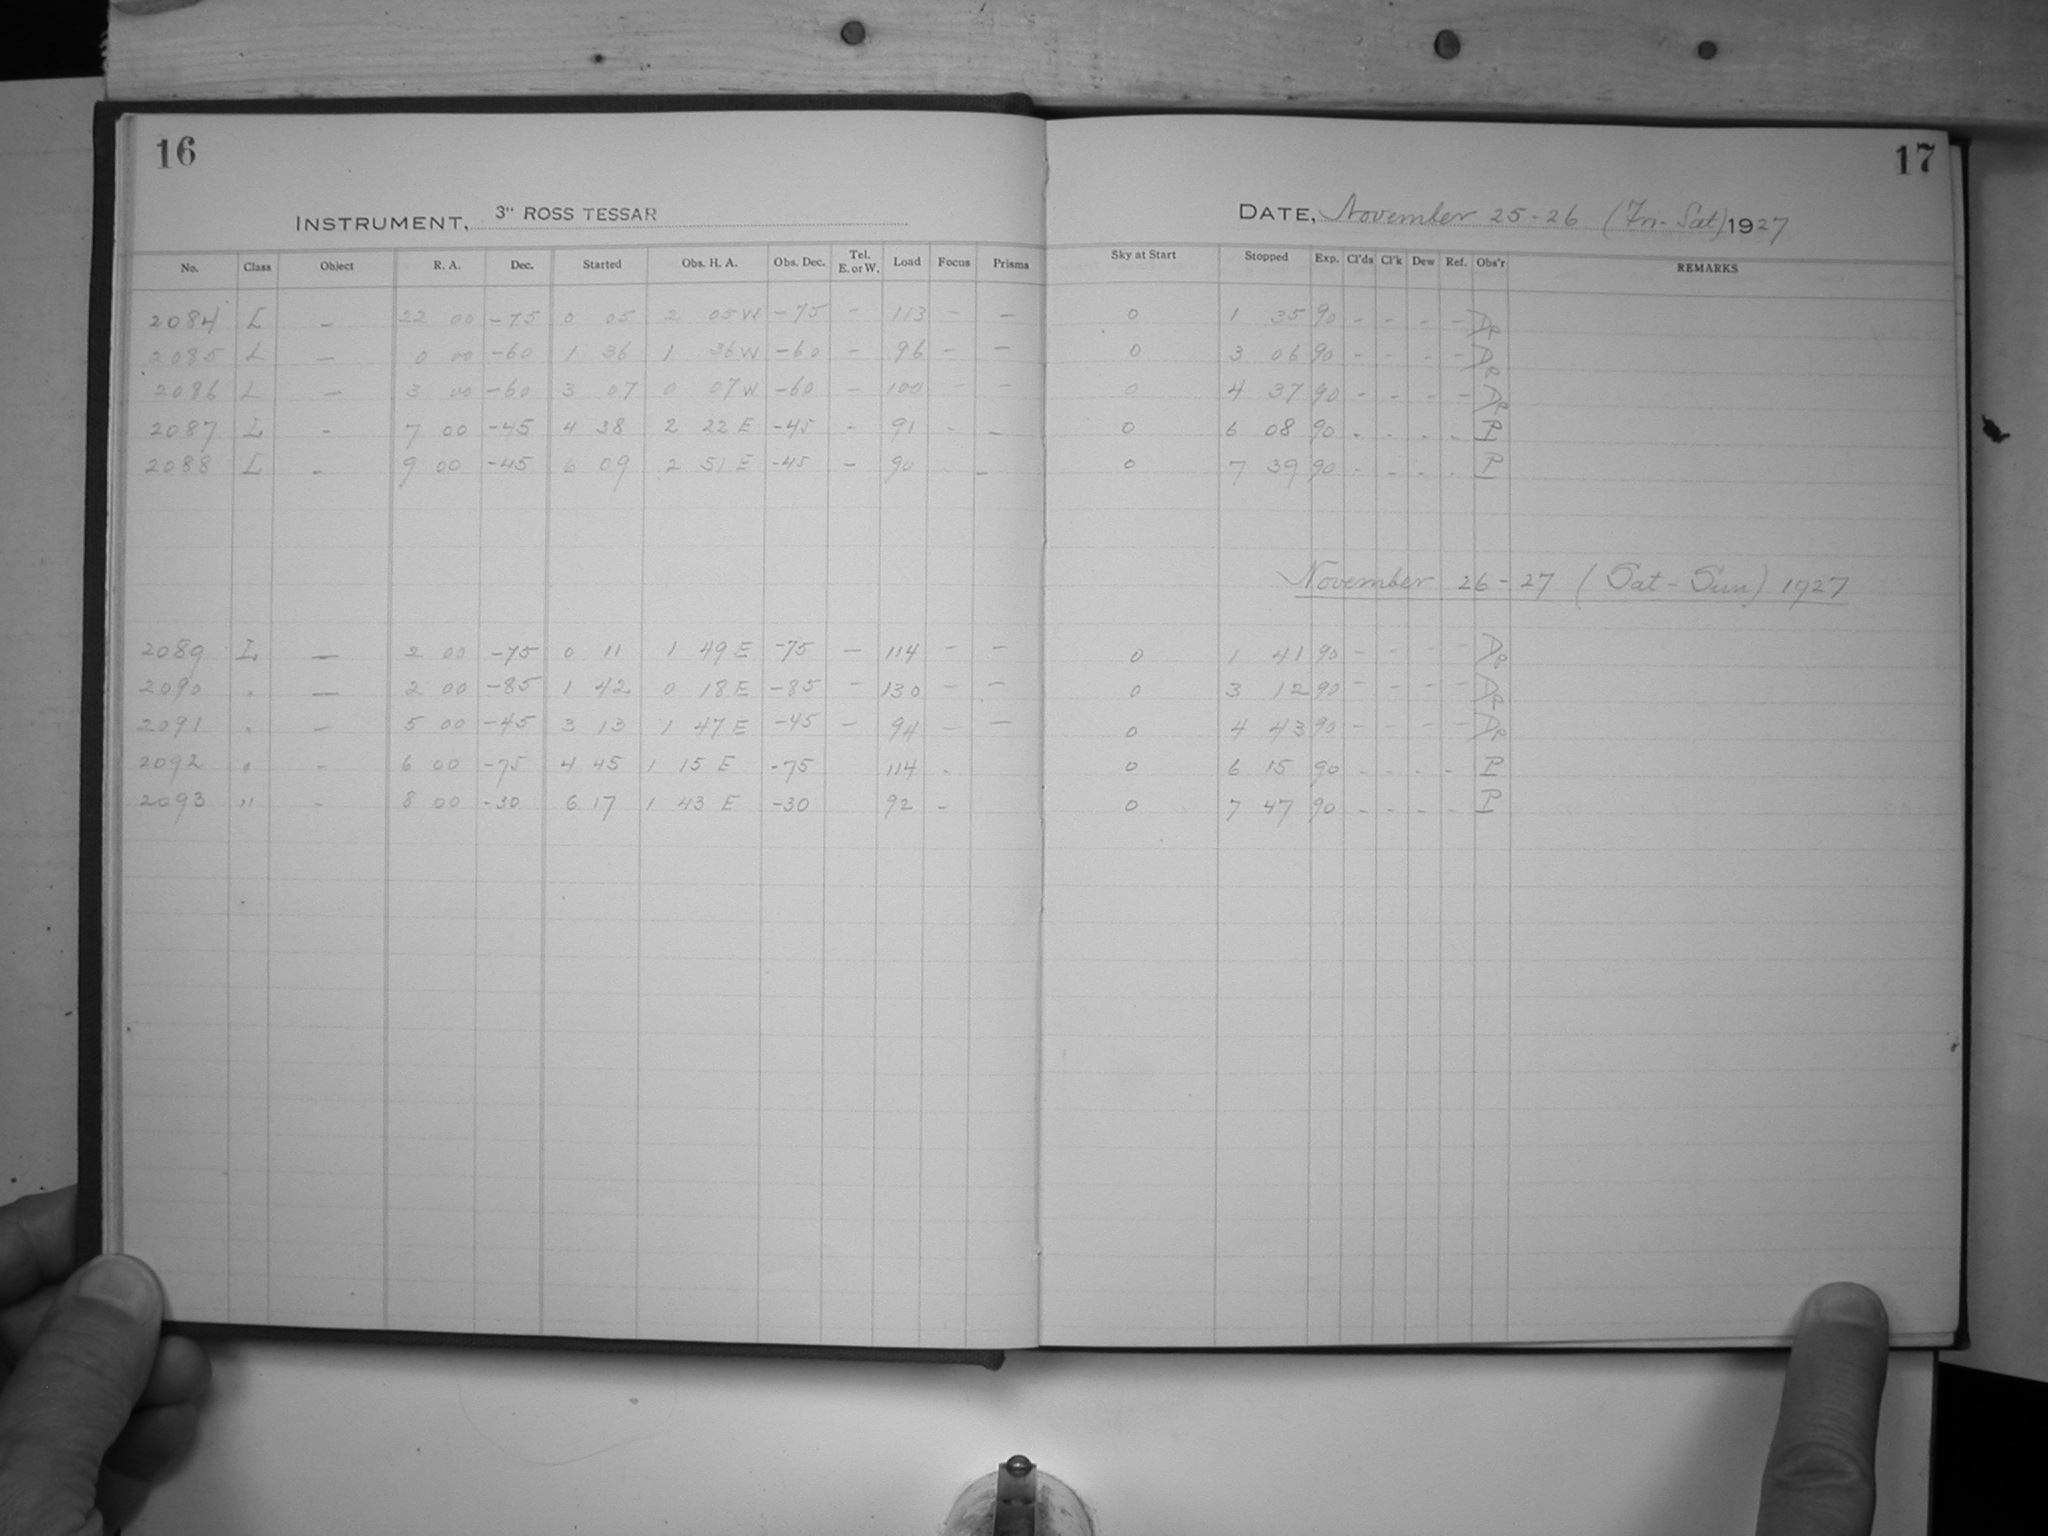 16
17
INSTRUMENT, 3" ROSS TESSAR
DATE, November 25-26 (Fri-Sat) 1927
No. Class Object R. A. Dec. Started Obs. H. A. Obs. Dec. Tel. E. or W. Load Focus Prisms Sky at Start Stopped Exp. Cl'ds Cl'k Dew Ref. Obs'r REMARKS
2084 L - 22 00 -75 0 05 2 05 W -75 - 113 - - 0 1 35 90 - - - -
2085 L - 0 00 -60 1 36 1 36 W -60 - 96 - - 0 3 06 90 - - - -
2086 L - 3 00 -60 3 07 0 07 W -60 - 100 - - 0 4 37 90 - - - -
2087 L - 7 00 -45 4 38 2 22 E -45 - 91 - - 0 6 08 90 - - - - P
2088 L - 9 00 -45 6 09 2 51 E -45 - 90 - - 0 7 39 90 - - - - P
November 26-27 (Sat-Sun) 1927
2089 L - 2 00 -75 0 11 1 49 E -75 - 114 - - 0 1 41 90 - - - -
2090 " - 2 00 -85 1 42 0 18 E -85 - 130 - - 0 3 12 90 - - - -
2091 " - 5 00 -45 3 13 1 47 E -45 - 94 - - 0 4 43 90 - - - -
2092 " - 6 00 -75 4 45 1 15 E -75 114 - 0 6 15 90 - - - - P
2093 " - 8 00 -30 6 17 1 43 E -30 92 - 0 7 47 90 - - - - P